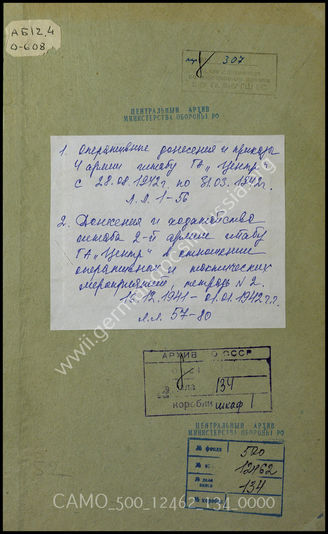 АБ12,4
О-608
307
ЦЕНТРАЛЬНЫЙ АРХИВ
МИНИСТЕРСТВА ОБОРОНЫ РФ
1. Оперативные донесения и приказы
4 армии штабу ГА "Центр"
с 28.08.1942г. по 31.03.1942г.
Л.Л. 1-56
2. Донесения и ходатайства
штаба 2-й армии штабу
ГА "Центр" в отношении
оперативных и тактических
мероприятий, тетрадь N 2.
12.1941 - 01.01.1942г.г.
Л.Л. 57-80
www.germandocsinrussia.org
АРХИВ СССР
134
коробки шкаф 1
ЦЕНТРАЛЬНЫЙ АРХИВ
МИНИСТЕРСТВА ОБОРОНЫ РФ
№ фонда 500
№ 12462
№ дела 134
№ коробки
CAMO_500_12462_134_0000